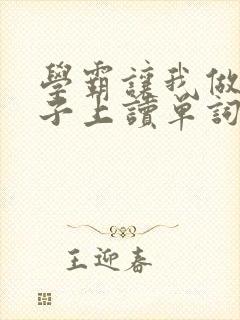 學霸讓我做
子上讀單詞
王迎春